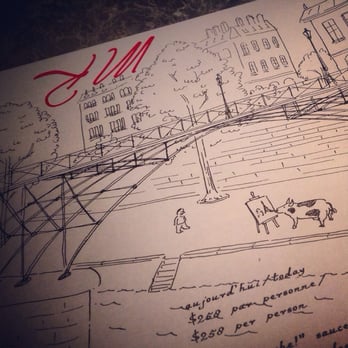 aujourd'hui/today
$258 par personne/
$258 per person
he!" sauce